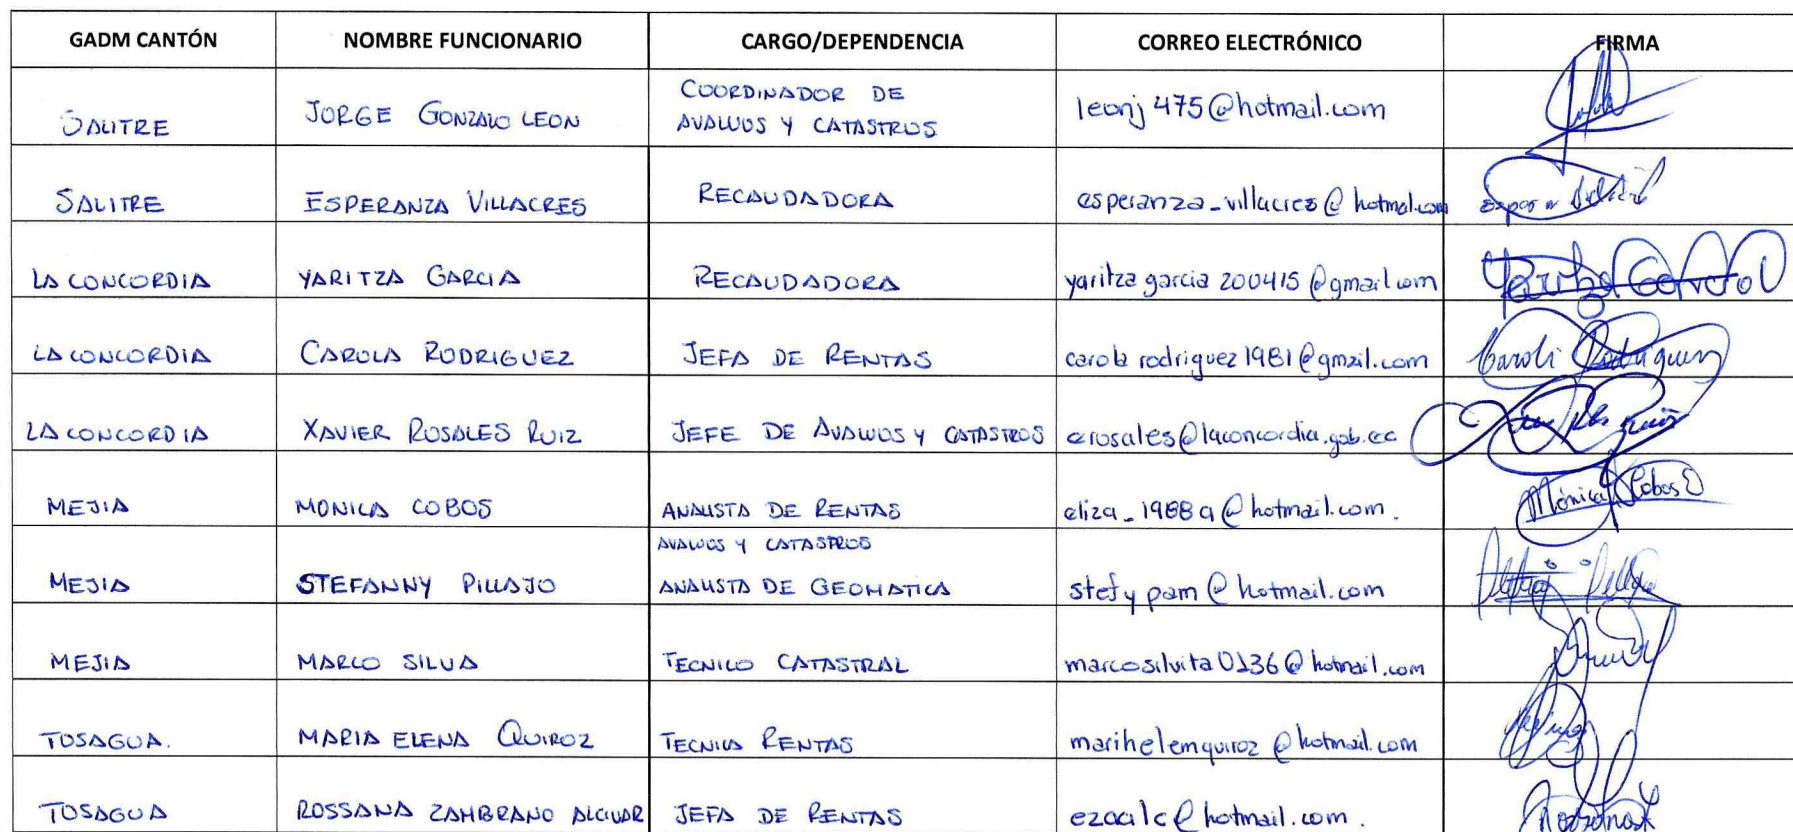 GADM CANTÓN NOMBRE FUNCIONARIO CARGO/DEPENDENCIA CORREO ELECTRÓNICO FIRMA
SALITRE JORGE GONZALO LEON COORDINADOR DE
AVALUOS Y CATASTROS leonj475@hotmail.com
SALITRE ESPERANZA VILLACRES RECAUDADORA esperanza_villacres@hotmail.com
LA CONCORDIA YARITZA GARCIA RECAUDADORA yaritzagarcia200415@gmail.com Yaritza Garcia
LA CONCORDIA CAROLA RODRIGUEZ JEFA DE RENTAS carolarodriguez1981@gmail.com Rodriguez
LA CONCORDIA XAVIER ROSALES RUIZ JEFE DE AVALUOS Y CATASTROS erosales@laconcordia.gob.ec
MEJIA MONICA COBOS ANALISTA DE RENTAS eliza_1988a@hotmail.com. Mónica Cobos
MEJIA STEFANNY PILLAJO AVALUOS Y CATASTROS
ANALISTA DE GEOMATICA stefypam@hotmail.com
MEJIA MARCO SILVA TECNICO CATASTRAL marcosilvita0136@hotmail.com
TOSAGUA. MARIA ELENA QUIROZ TECNICA RENTAS marihelemquiroz@hotmail.com
TOSAGUA ROSSANA ZAMBRANO ALCIVAR JEFA DE RENTAS ezoalc@hotmail.com.